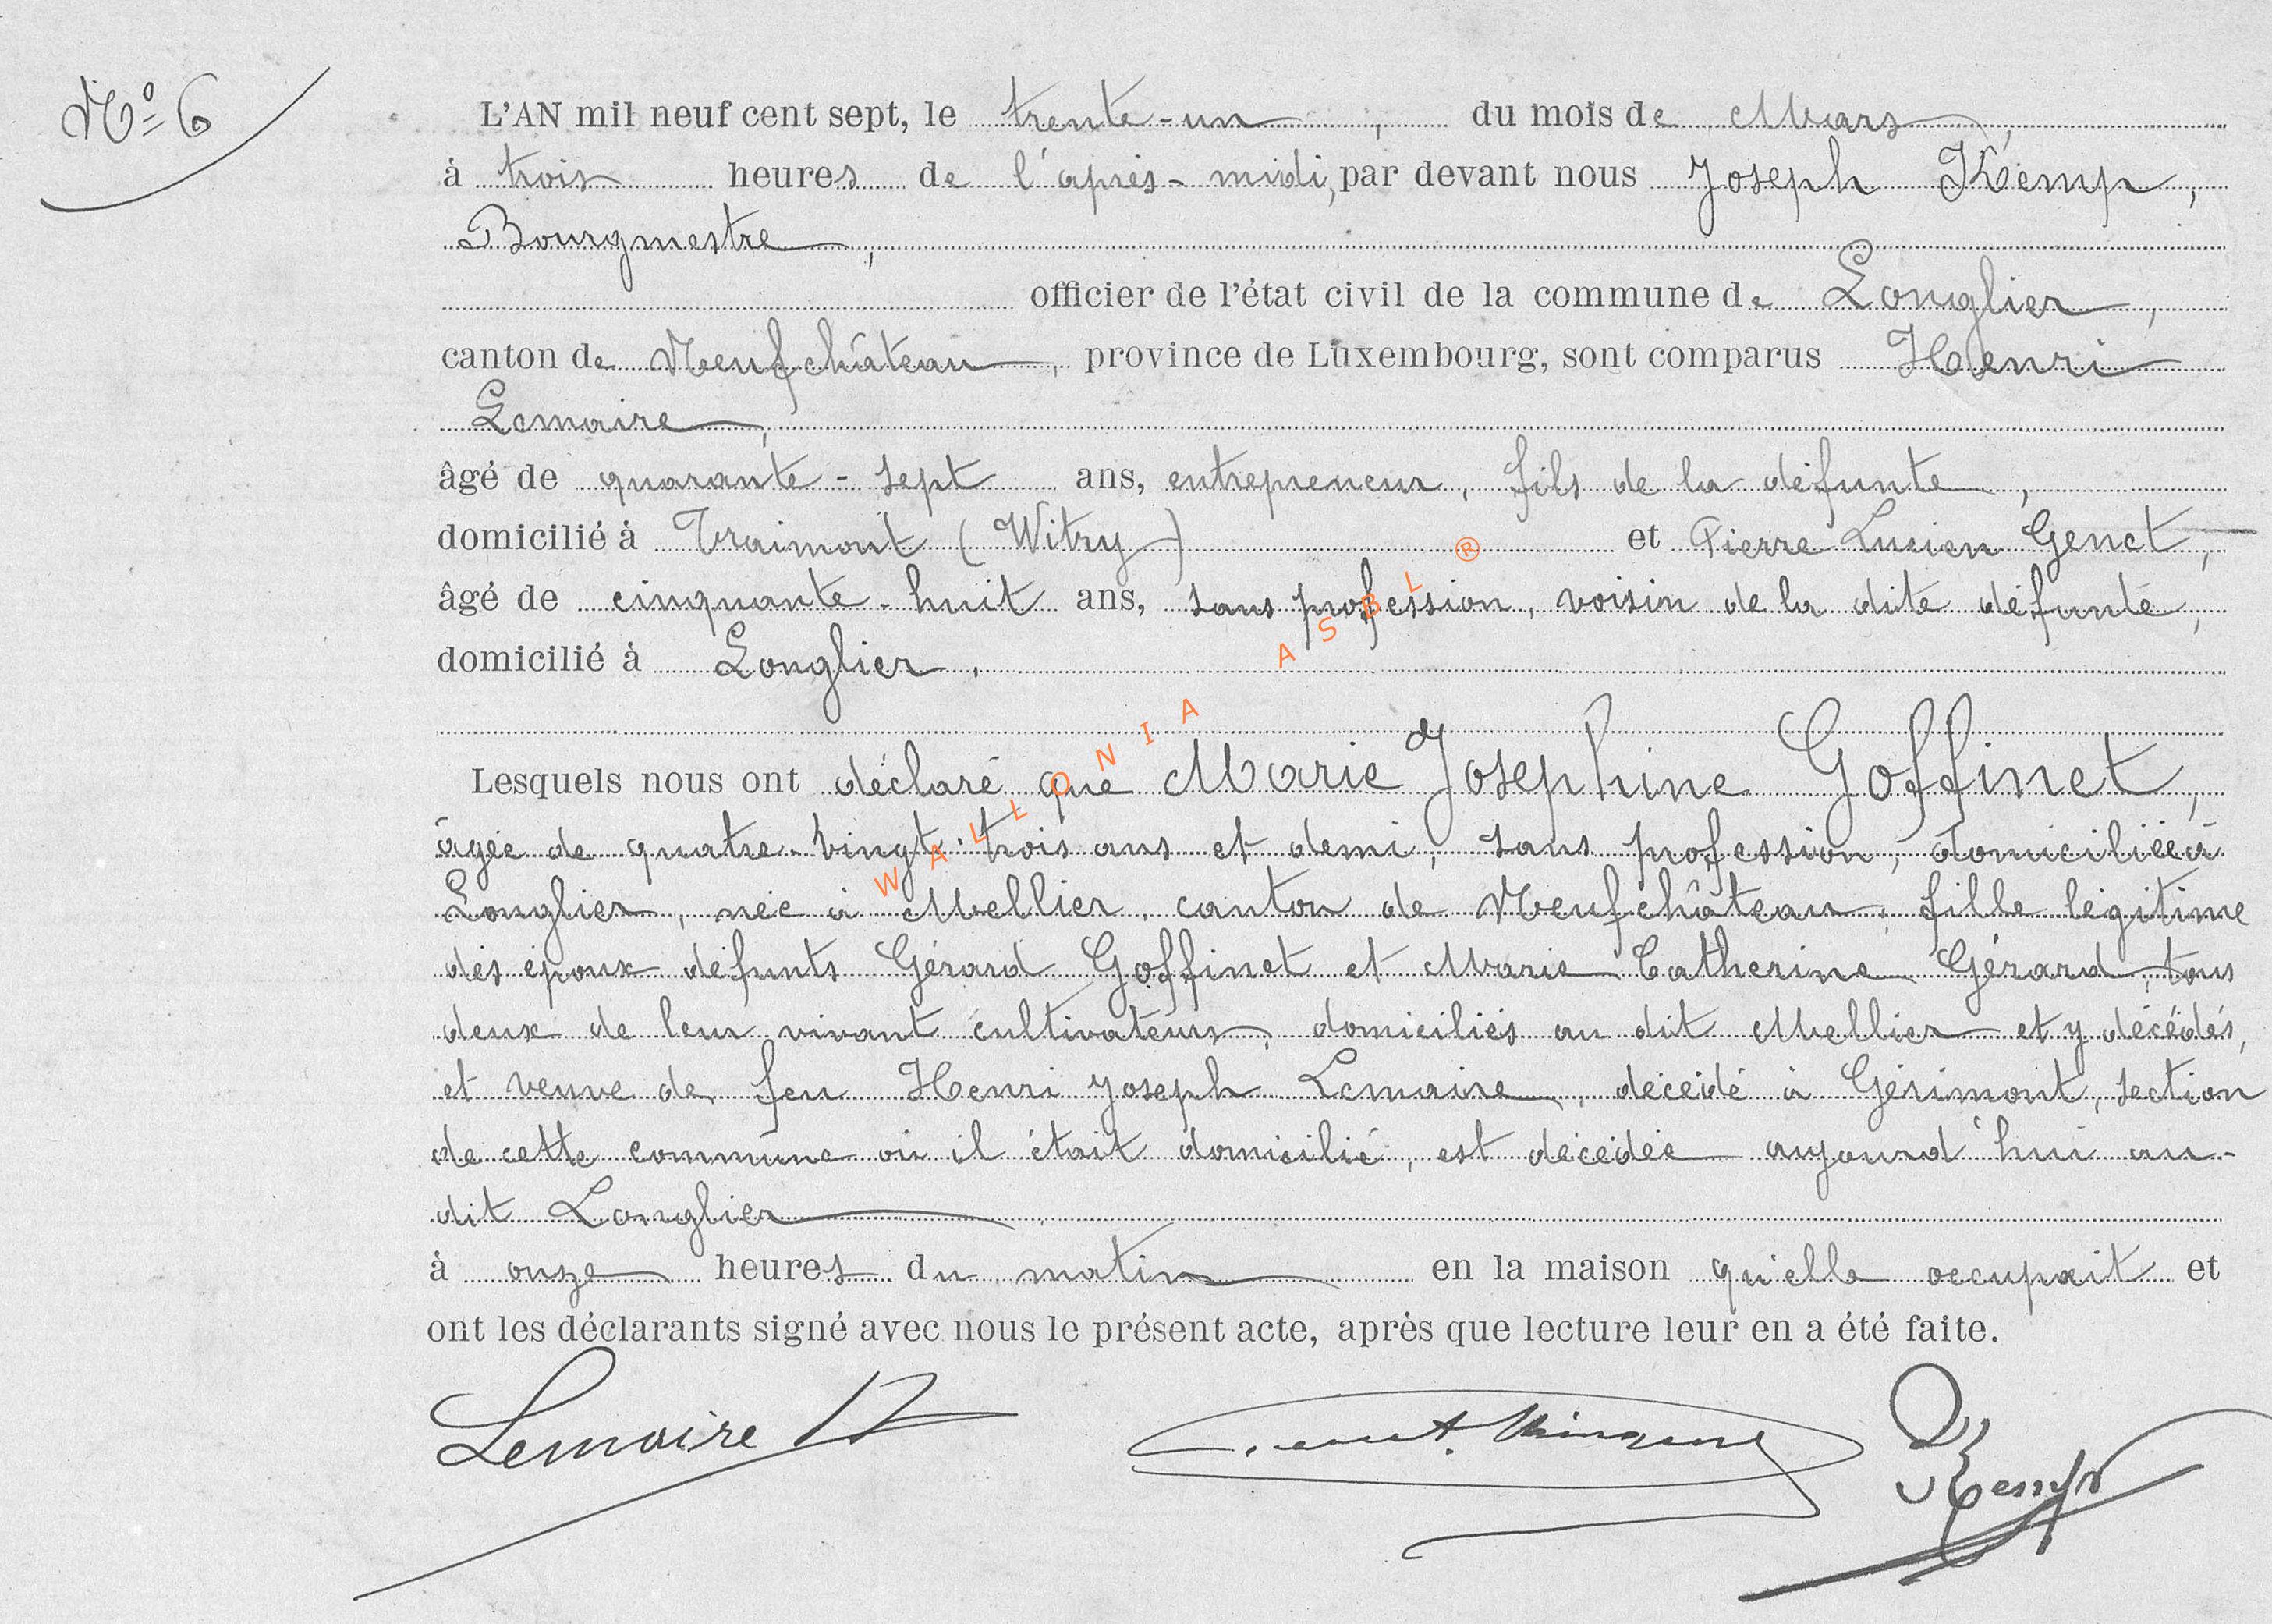 Nº 6
L'AN mil neuf cent sept, le trente-un, du mois de Mars,
à trois heures de l'après-midi, par devant nous Joseph Kemp,
Bourgmestre,
officier de l'état civil de la commune de Longlier,
canton de Neufchâteau, province de Luxembourg, sont comparus Henri
Lemaire,
âgé de quarante-sept ans, entrepreneur, fils de la défunte,
domicilié à Traimont (Witry) et Pierre Lucien Genet,
âgé de cinquante-huit ans, sans profession, voisin de la dite défunte,
domicilié à Longlier.
Lesquels nous ont déclaré que Marie Joséphine Goffinet,
âgée de quatre-vingt-trois ans et demi, sans profession, domiciliée à
Longlier, née à Mellier, canton de Neufchâteau, fille légitime
des époux défunts Gérard Goffinet et Marie Catherine Gérard, tous
deux de leur vivant cultivateurs, domiciliés au dit Mellier et y décédés,
et veuve de feu Henri Joseph Lemaire, décédé à Gérimont, section
de cette commune où il était domicilié, est décédée aujourd'hui au-
dit Longlier
à onze heures du matin en la maison qu'elle occupait et
ont les déclarants signé avec nous le présent acte, après que lecture leur en a été faite.
Lemaire H
Kemp
WALLONIA ASBL ®